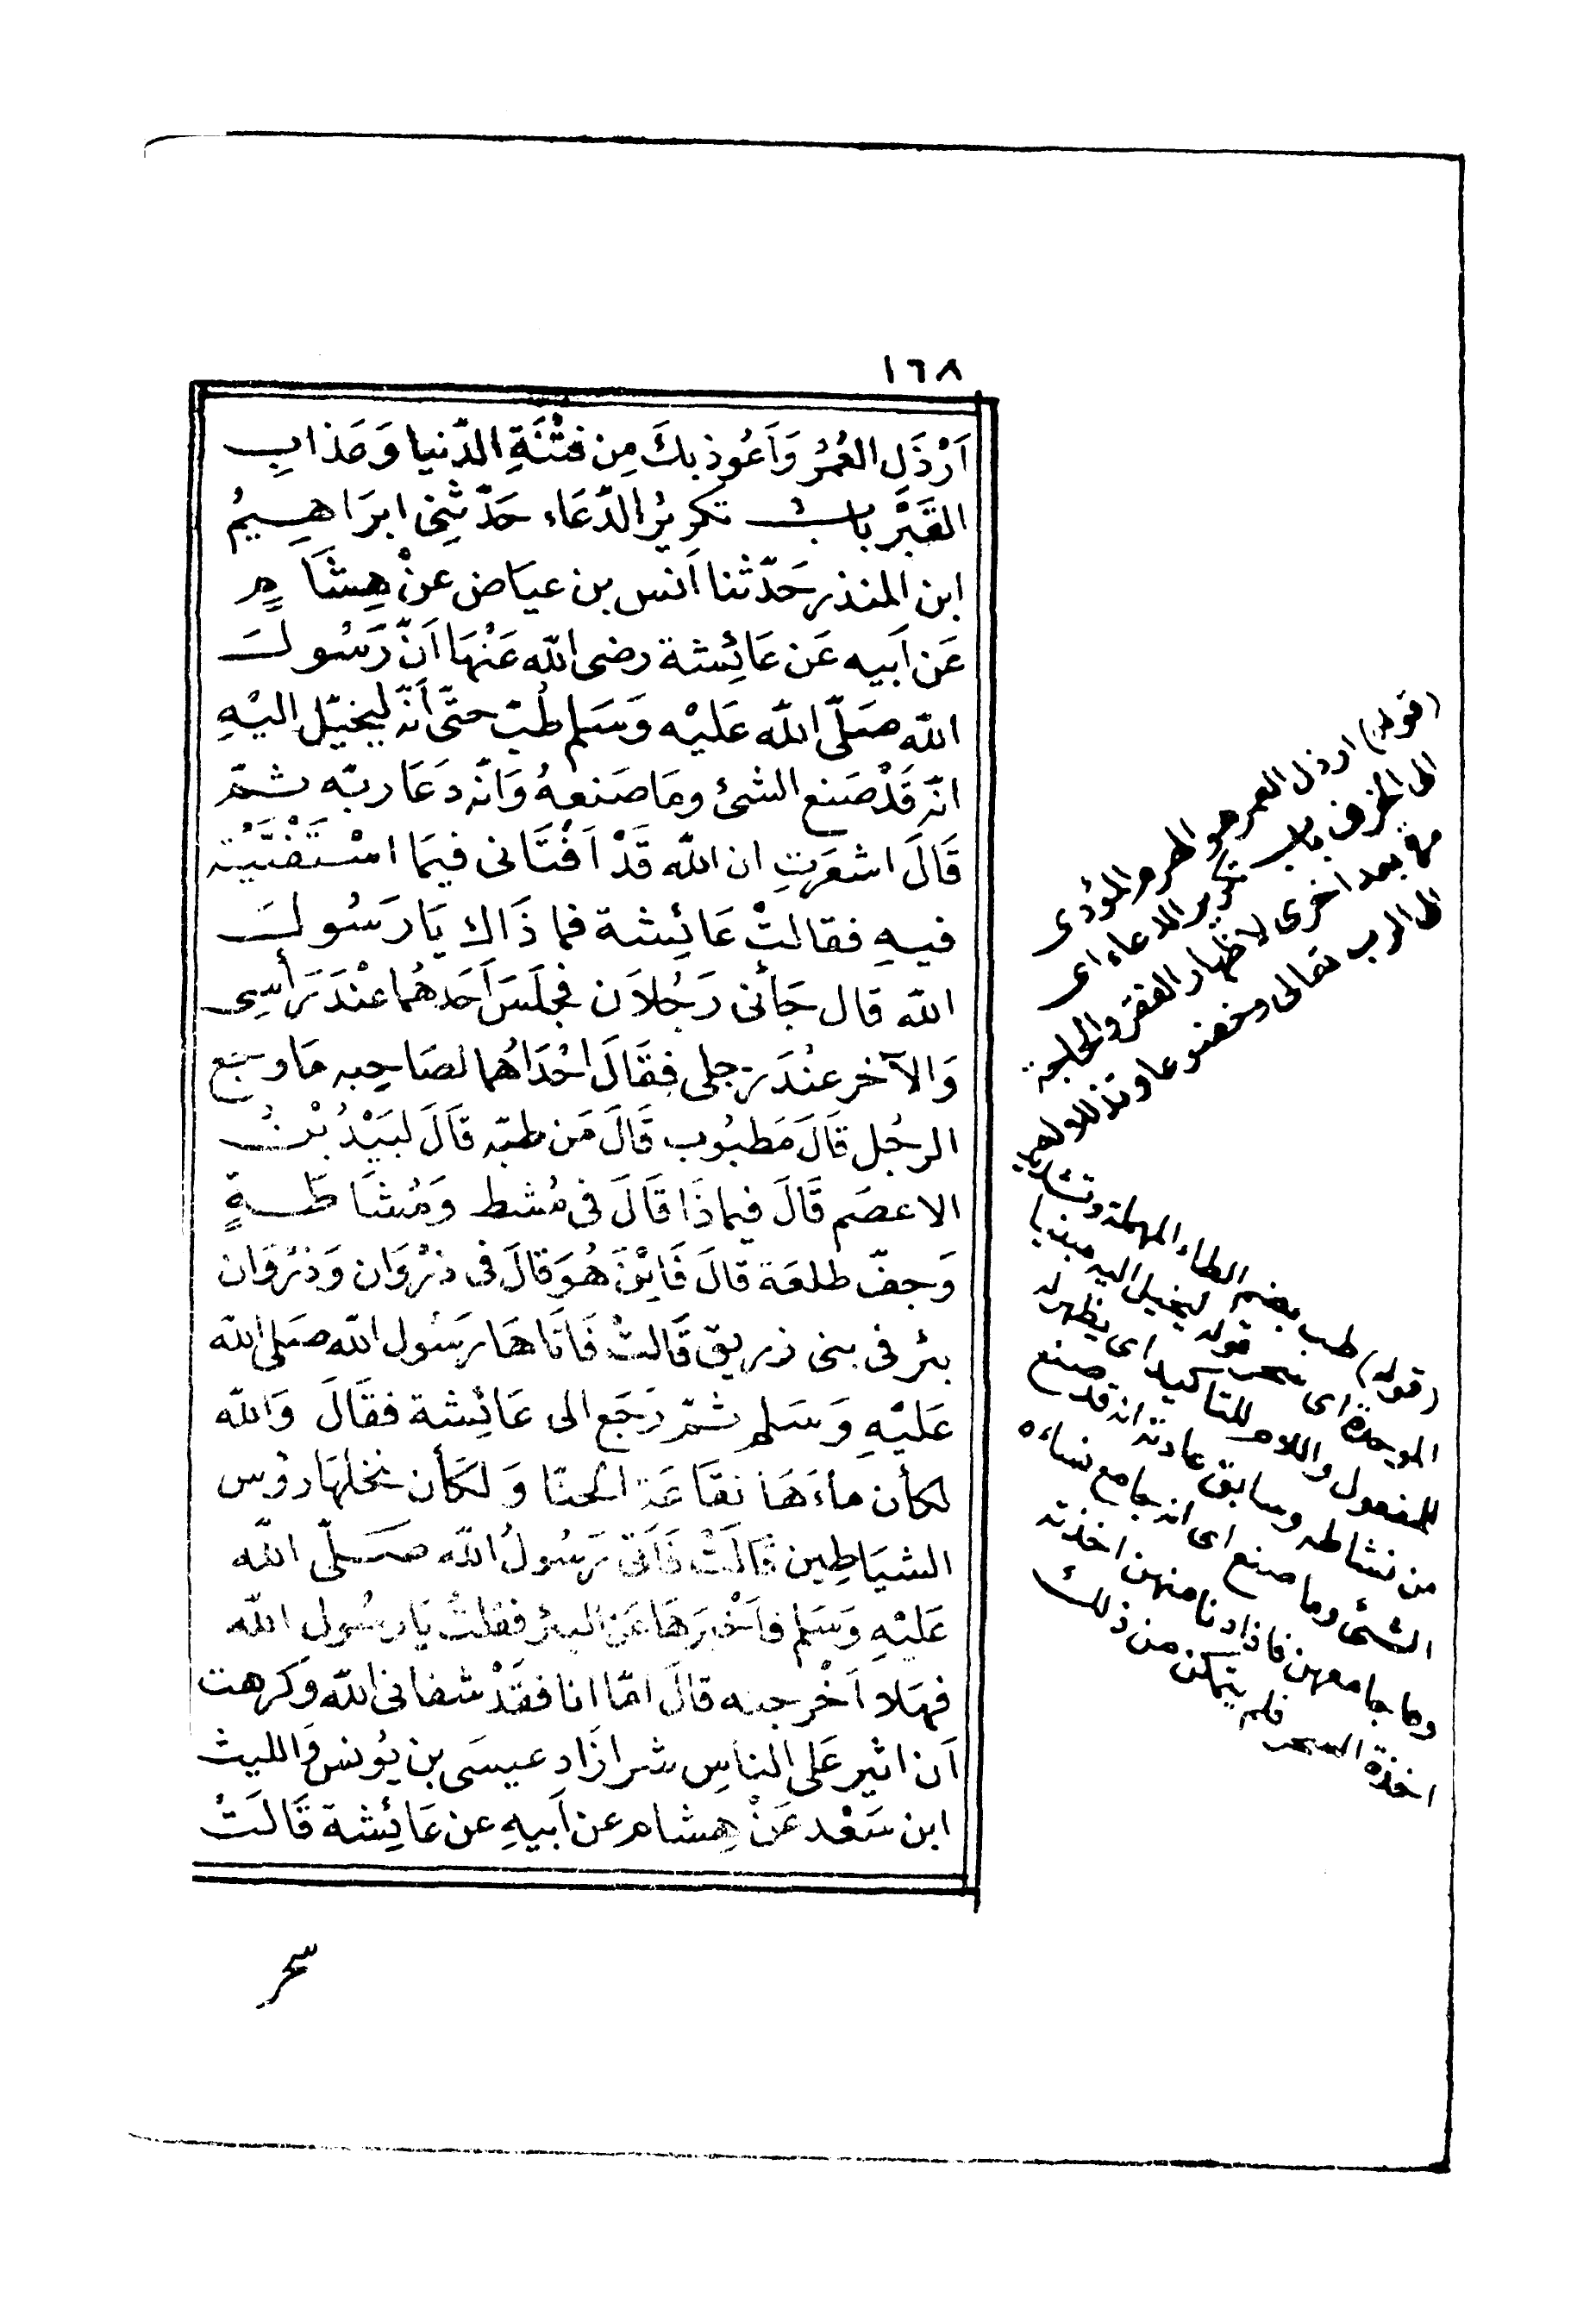 ١٦٨
اَرْذَلِ العُمُرِ وَاَعُوذ بكَ مِن فتْنَةِ الدّنيا وَعَذابِ
القَبْرِ بابُ تكريرُ الدّعَاء حَدّثنِى ابرَاهِيمُ
ابن المنذر حَدّثنا اَنس بن عيَاض عنْ هِشَامٍ
عَن اَبيه عَن عَائِشة رضى الله عَنْهَا اَنّ رَسُولَ
الله صَلّى الله عَليْه وَسَلم طُبّ حتّى اَنّه ليخيّل اليْهِ
انّه قَدْ صَنع الشئ ومَا صَنعهُ وَانّه دَعَا ربّه ثمّ
قَالَ اشعَرتِ ان الله قَدْ اَفْتَانى فيمَا اسْتَفْتَيْته
فيهِ فقالتْ عَائِشة فما ذَاك يَا رَسُولَ
الله قال جَائنى رَجُلاَن فجلَسَ اَحَدهُما عنْدَ رَأسِى
وَالآخر عنْدَ رجلى فقَالَ احْدَاهُما لصَاحِبه مَا وَجَع
الرجُل قَالَ مَطبُوب قَالَ مَن طبّه قَالَ لبَيْدُ بْنُ
الاعصَم قَالَ فيماذَا قَالَ فى مُشط وَمُشَاطَةٍ
وَجفّ طلعَة قالَ فَايْنَ هُوَ قالَ فى ذرْوَان وَذرْوَان
بئر فى بنى زريق قَالتْ فَاتَاهَا رَسُول الله صَلى الله
عَليْهِ وَسَلم ثمّ رَجَع الى عَائِشة فقَالَ وَالله
لكأن ماءَهَا نقَاعَة الحنّا وَلكأن نخلهَا رؤس
الشيَاطِين قَالَتْ فَاَتى رَسُولُ الله صَلّى الله
عَليْهِ وَسَلم فاَخْبرَهَا عَن البئر فقلتُ يَا رسُول الله
فهَلا اَخْرجته قالَ امّا انا فقَدْ شفانى الله وَكرهت
اَن اثير عَلى الناسِ شرا زَادَ عيسَى بن يُونس وَالليث
ابن سَعْد عَنْ هِشام عن اَبيهِ عن عَائِشة قَالَتْ
سحر
(قوله) ارذل العمر هو الهرم المؤدى
الى الخرف باب تكرير الدعاء اى
مرة بعد اخرى لاظهار الفقر والحاجة
الى الرب تعالى وخضوعا وتذللا له
(قوله) طب بضم الطاء المهملة وتشديد
الموحدة اى سحر قوله ليخيل اليه مبنيا
للمفعول واللام للتاكيد اى يظهر له
من نشاطه وسابق عادته انه قد صنع
الشئ وما صنع اى انه جامع نساءه
وما جامعهن فاذا دنا منهن اخذته
اخذة السحر فلم يتمكن من ذلك